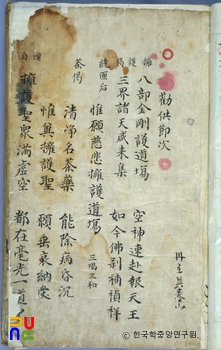 勸供節次
八部金剛護道塲 空神速赴報天王
三界諸天咸來集 如今佛刹補禎祥
惟願慈悲擁護道塲 三唱三和
茶偈 清淨名茶藥 能除病昏沉
惟冀擁護聖 願垂哀納受
擁護聖衆滿虛空 都在毫光一道
© 한국학중앙연구원